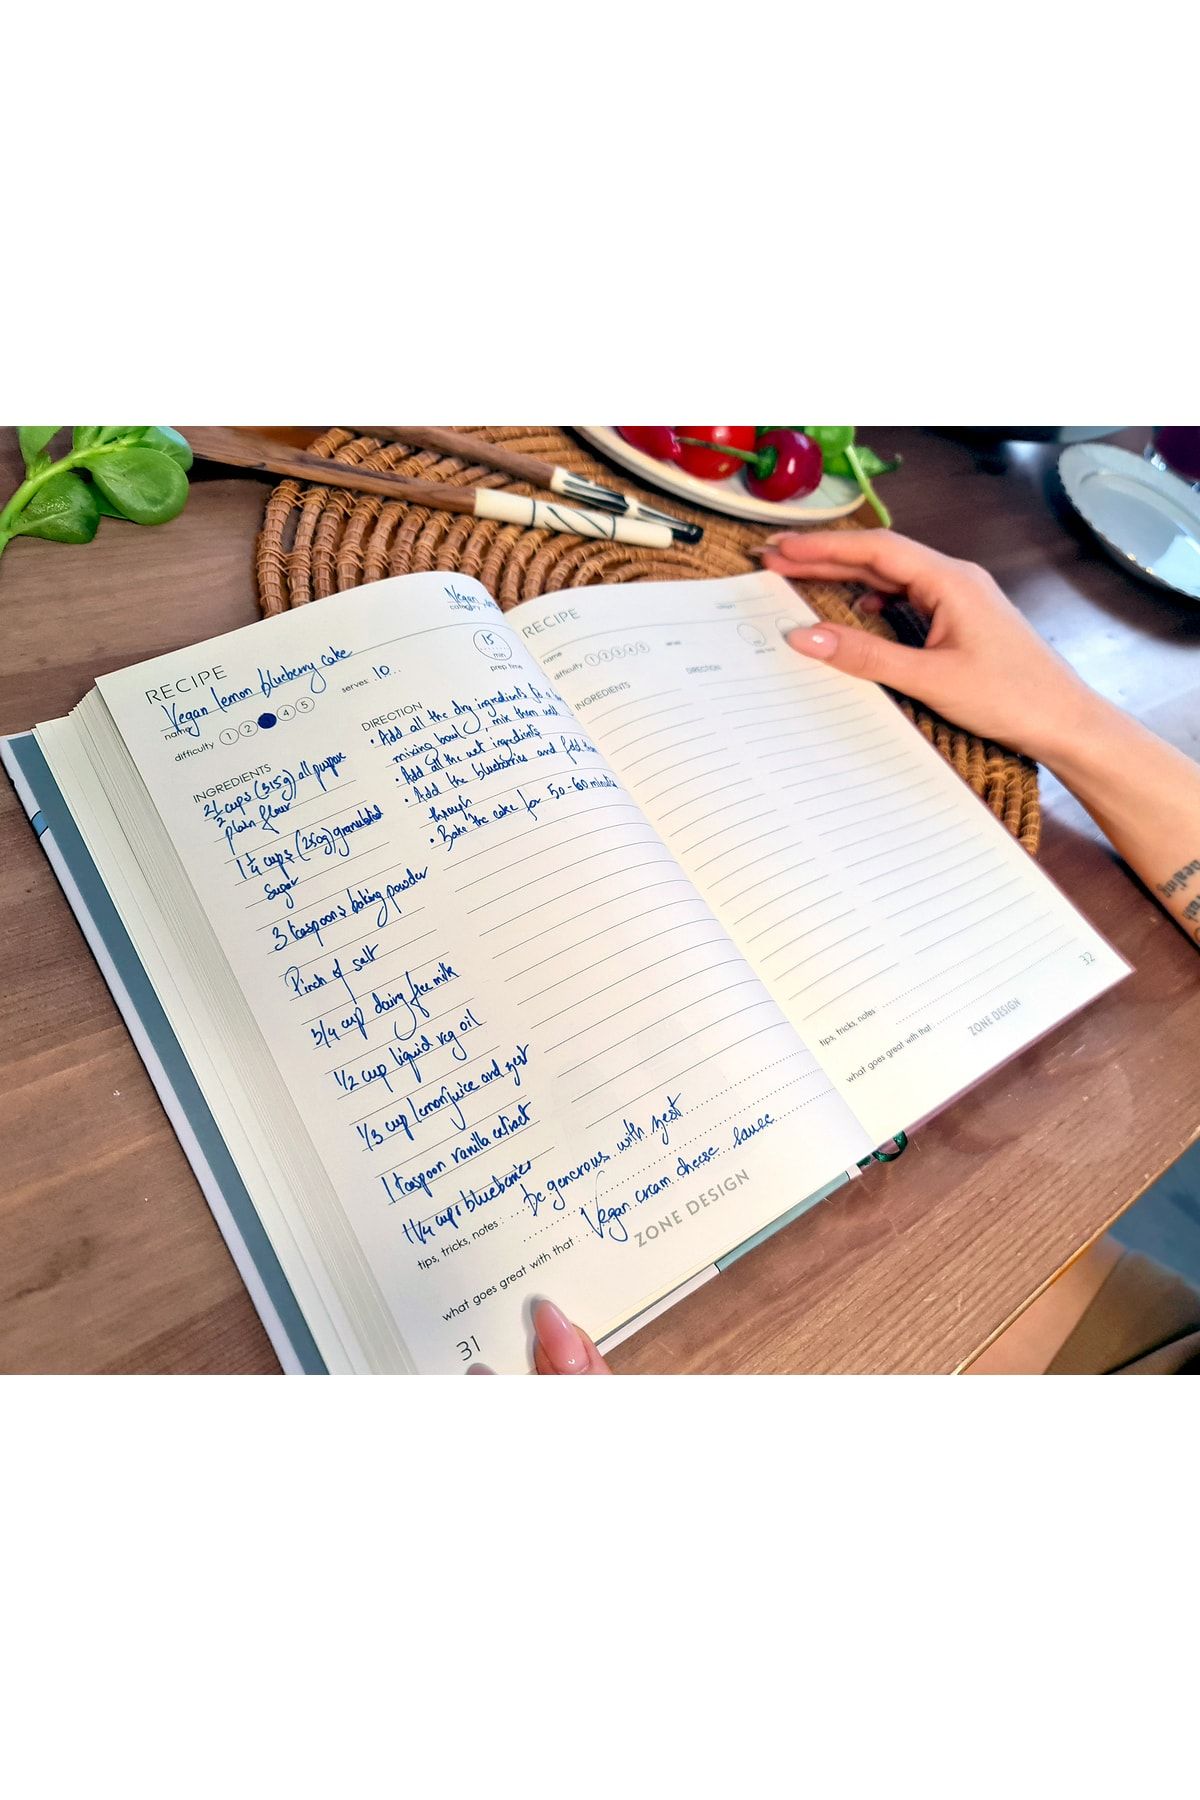 Vegan
category
RECIPE
15
min
prep time
Vegan lemon blueberry cake
name
serves: 10...
difficulty 1 2 4 5
INGREDIENTS
2 1/2 cups (315g) all purpose
plain flour
1 1/4 cups (250g) granulated
sugar
3 teaspoons baking powder
Pinch of salt
3/4 cup dairy free milk
1/2 cup liquid veg oil
1/3 cup lemon juice and zest
1 teaspoon vanilla extract
1 1/4 cups blueberries
DIRECTION
• Add all the dry ingredients to a
mixing bowl, mix them well
• Add all the wet ingredients
• Add the blueberries and fold them
through
• Bake the cake for 50-60 minutes
tips, tricks, notes : Be generous with zest
what goes great with that : Vegan cream cheese sauce
ZONE DESIGN
31
RECIPE
name
difficulty 1 2 3 4 5
INGREDIENTS
DIRECTION
tips, tricks, notes
what goes great with that :
ZONE DESIGN
32
healing